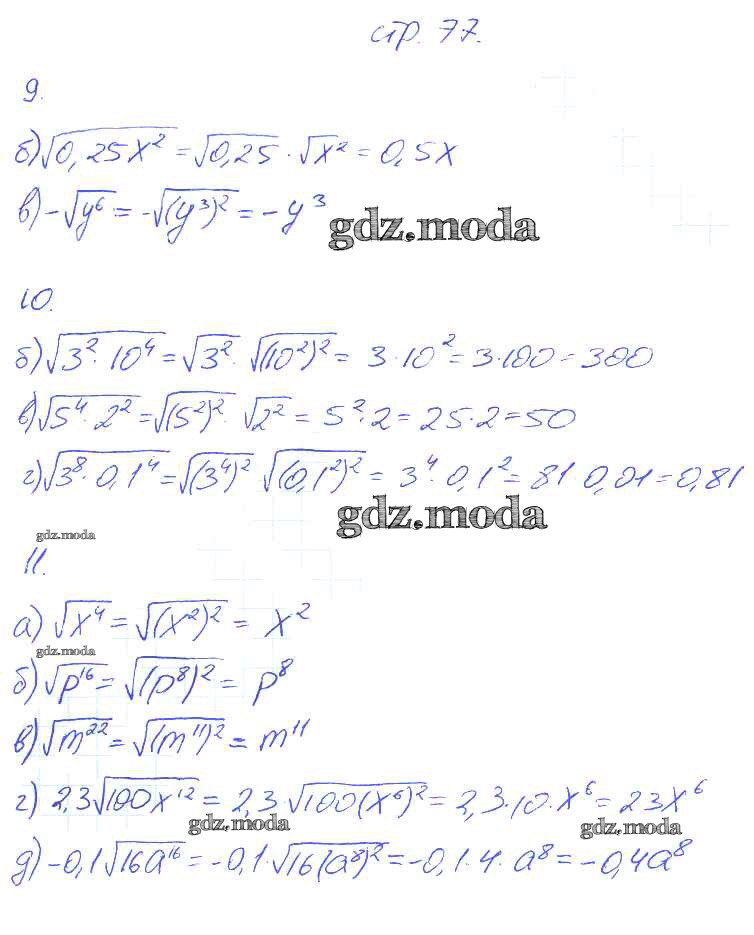 стр. 77.
9.
б) √0,25x² = √0,25 · √x² = 0,5x
в) -√y⁶ = -√(y³)² = -y³
gdz.moda
10.
б) √3² · 10⁴ = √3² · √(10²)² = 3 · 10² = 3 · 100 = 300
в) √5⁴ · 2² = √(5²)² · √2² = 5² · 2 = 25 · 2 = 50
г) √3⁸ · 0,1⁴ = √(3⁴)² √(0,1²)² = 3⁴ · 0,1² = 81 0,01 = 0,81
gdz.moda
gdz.moda
11.
а) √x⁴ = √(x²)² = x²
gdz.moda
б) √p¹⁶ = √(p⁸)² = p⁸
в) √m²² = √(m¹¹)² = m¹¹
г) 2,3√100x¹² = 2,3 · √100(x⁶)² = 2,3 · 10 · x⁶ = 23x⁶
gdz.moda gdz.moda
д) -0,1√16a¹⁶ = -0,1 · √16(a⁸)² = -0,1 · 4 · a⁸ = -0,4a⁸